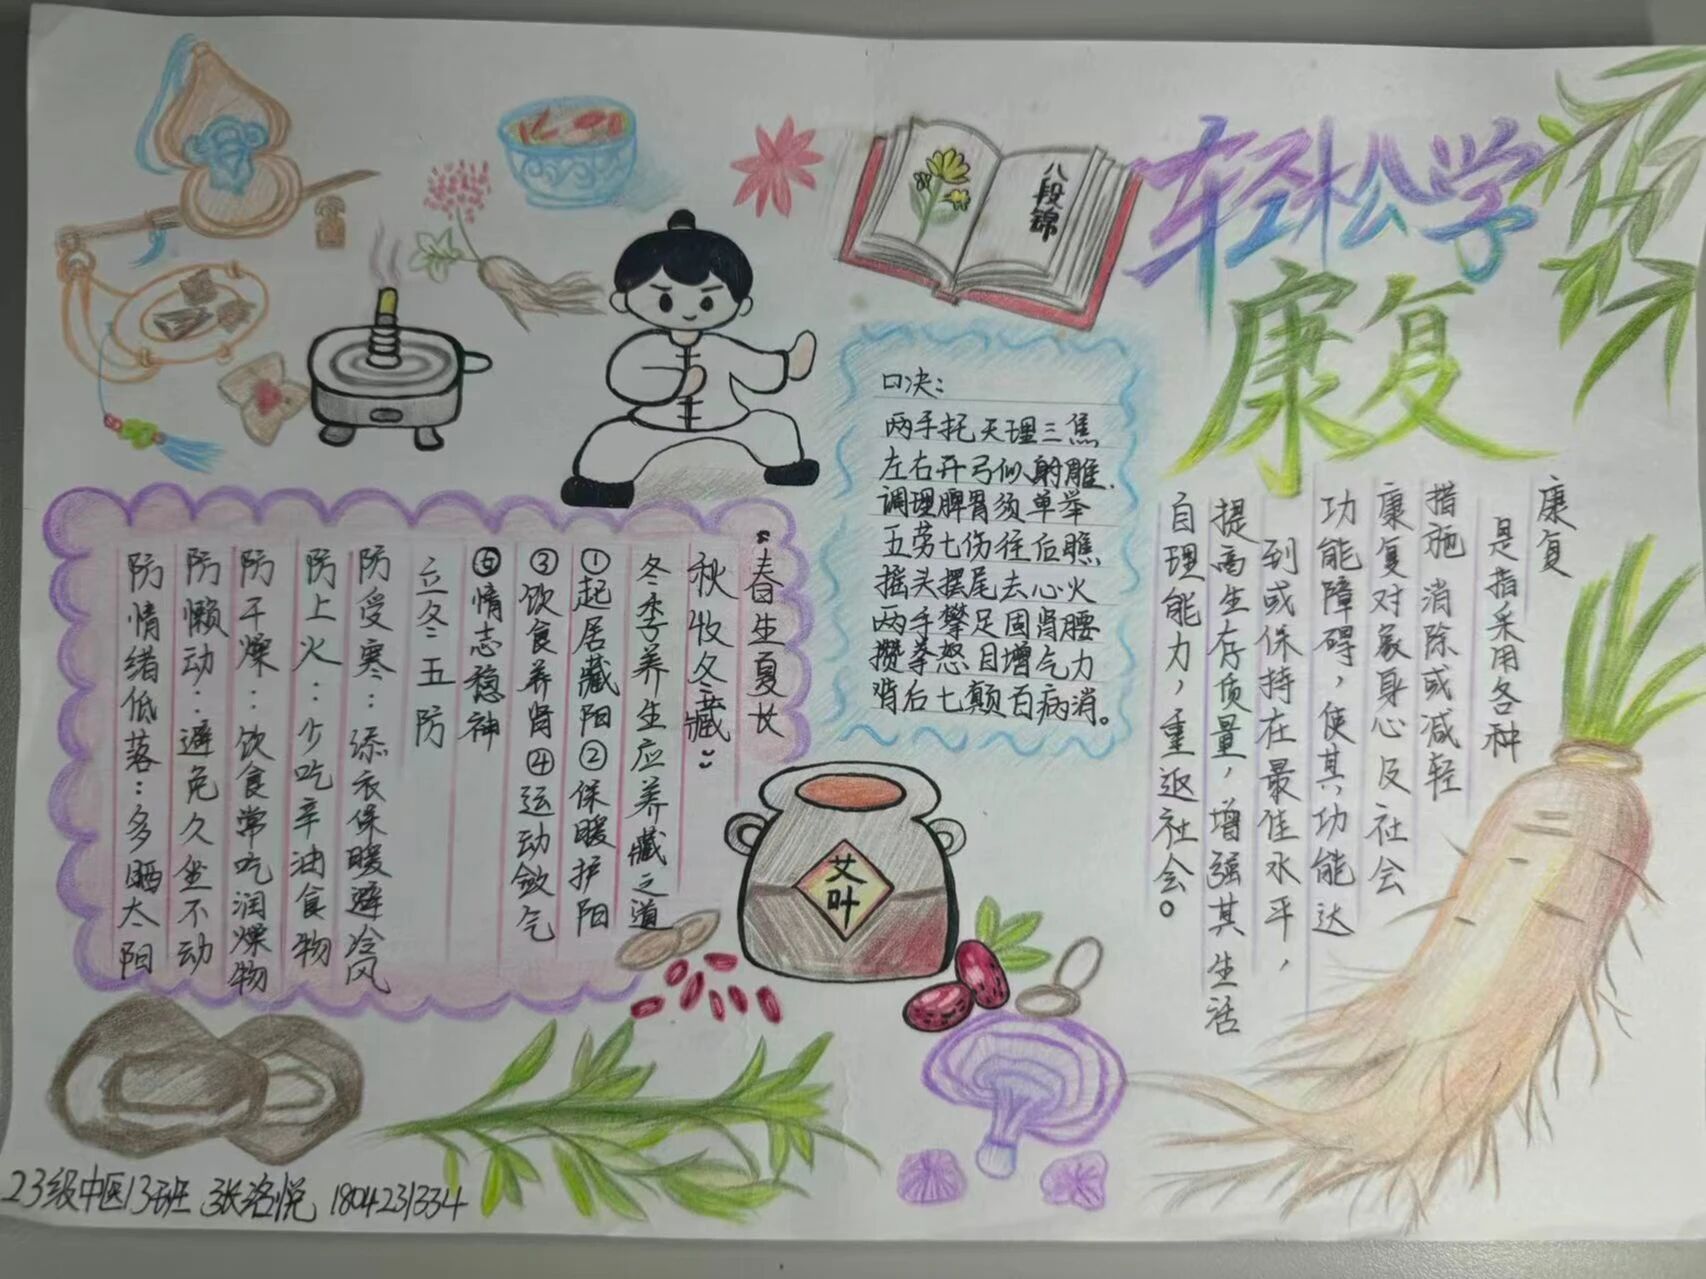 轻松学
康复
八段锦
口决：
两手托天理三焦
左右开弓似射雕.
调理脾胃须单举
五劳七伤往后瞧
摇头摆尾去心火
两手攀足固肾腰
攒拳怒目增气力
背后七颠百病消。
康复
是指采用各种
措施 消除或减轻
康复对象身心及社会
功能障碍，使其功能达
到或保持在最佳水平，
提高生存质量，增强其生活
自理能力，重返社会。
“春生夏长
秋收冬藏”
冬季养生应养藏之道
①起居藏阳②保暖护阳
③饮食养肾④运动敛气
⑤情志稳神
立冬五防
防受寒：添衣保暖避冷风
防上火：少吃辛油食物
防干燥：饮食常吃润燥物
防懒动：避免久坐不动
防情绪低落：多晒太阳
艾叶
23级中医13班 张洛悦 1804231334